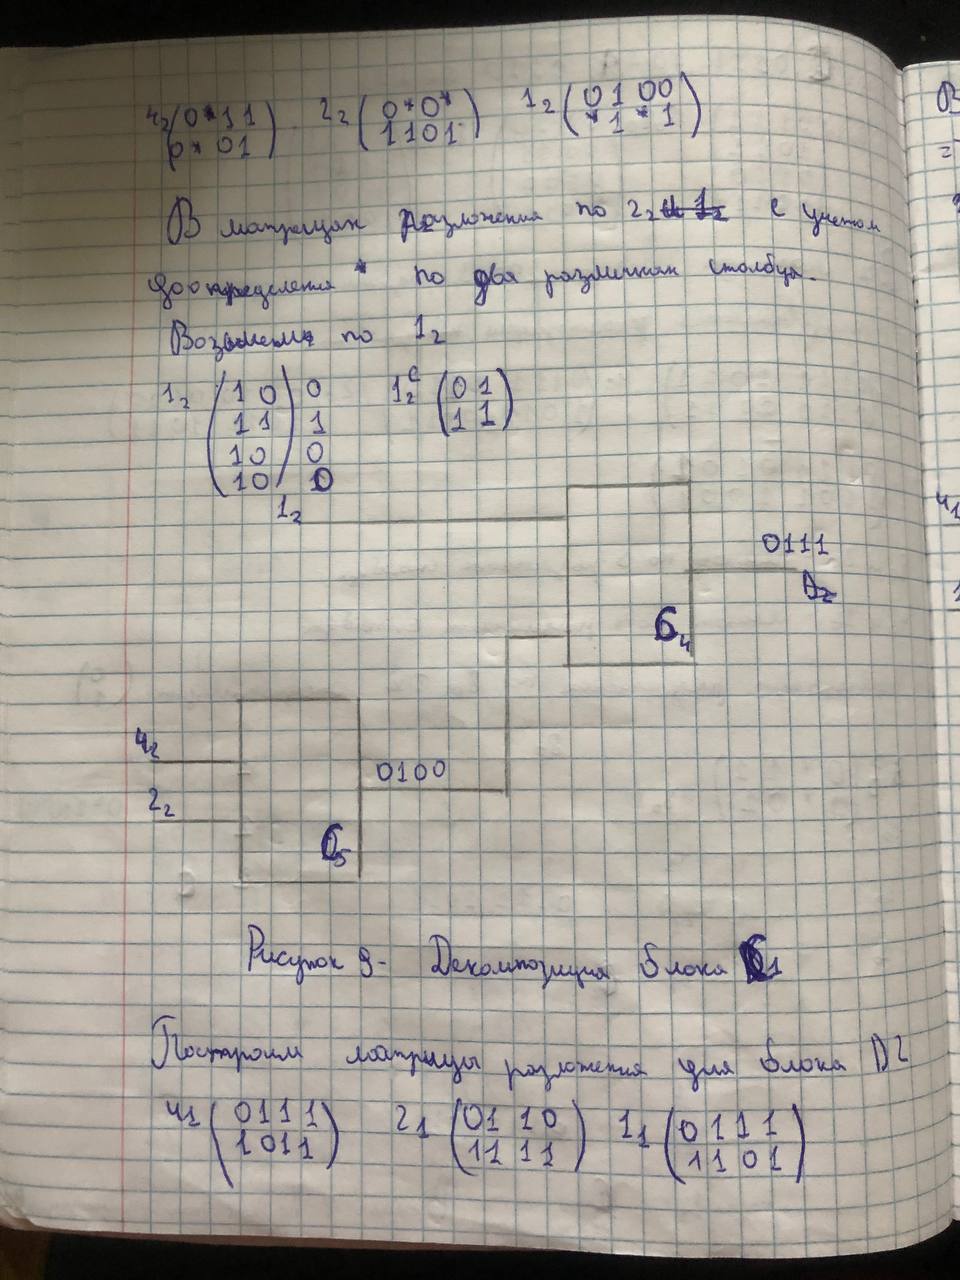 4₂ (0*11 2₂ (0*0* 1₂ (0100
0*01) 1101) *1*1)
В матрицах разложения по 2₂ с учетом
доопределения * по два различных столбца.
Возьмем по 1₂
1₂ (10) 0 1₂ᶜ (01
11 1 11)
10 0
10 0
1₂
0111
D₂
G₄
4₂
0100
2₂
G₅
Рисунок 9- Декомпозиция блока G1
Построим матрицы разложения для блока D2
4₁ (0111 2₁ (0110 1₁ (0111
1011) 1111) 1101)